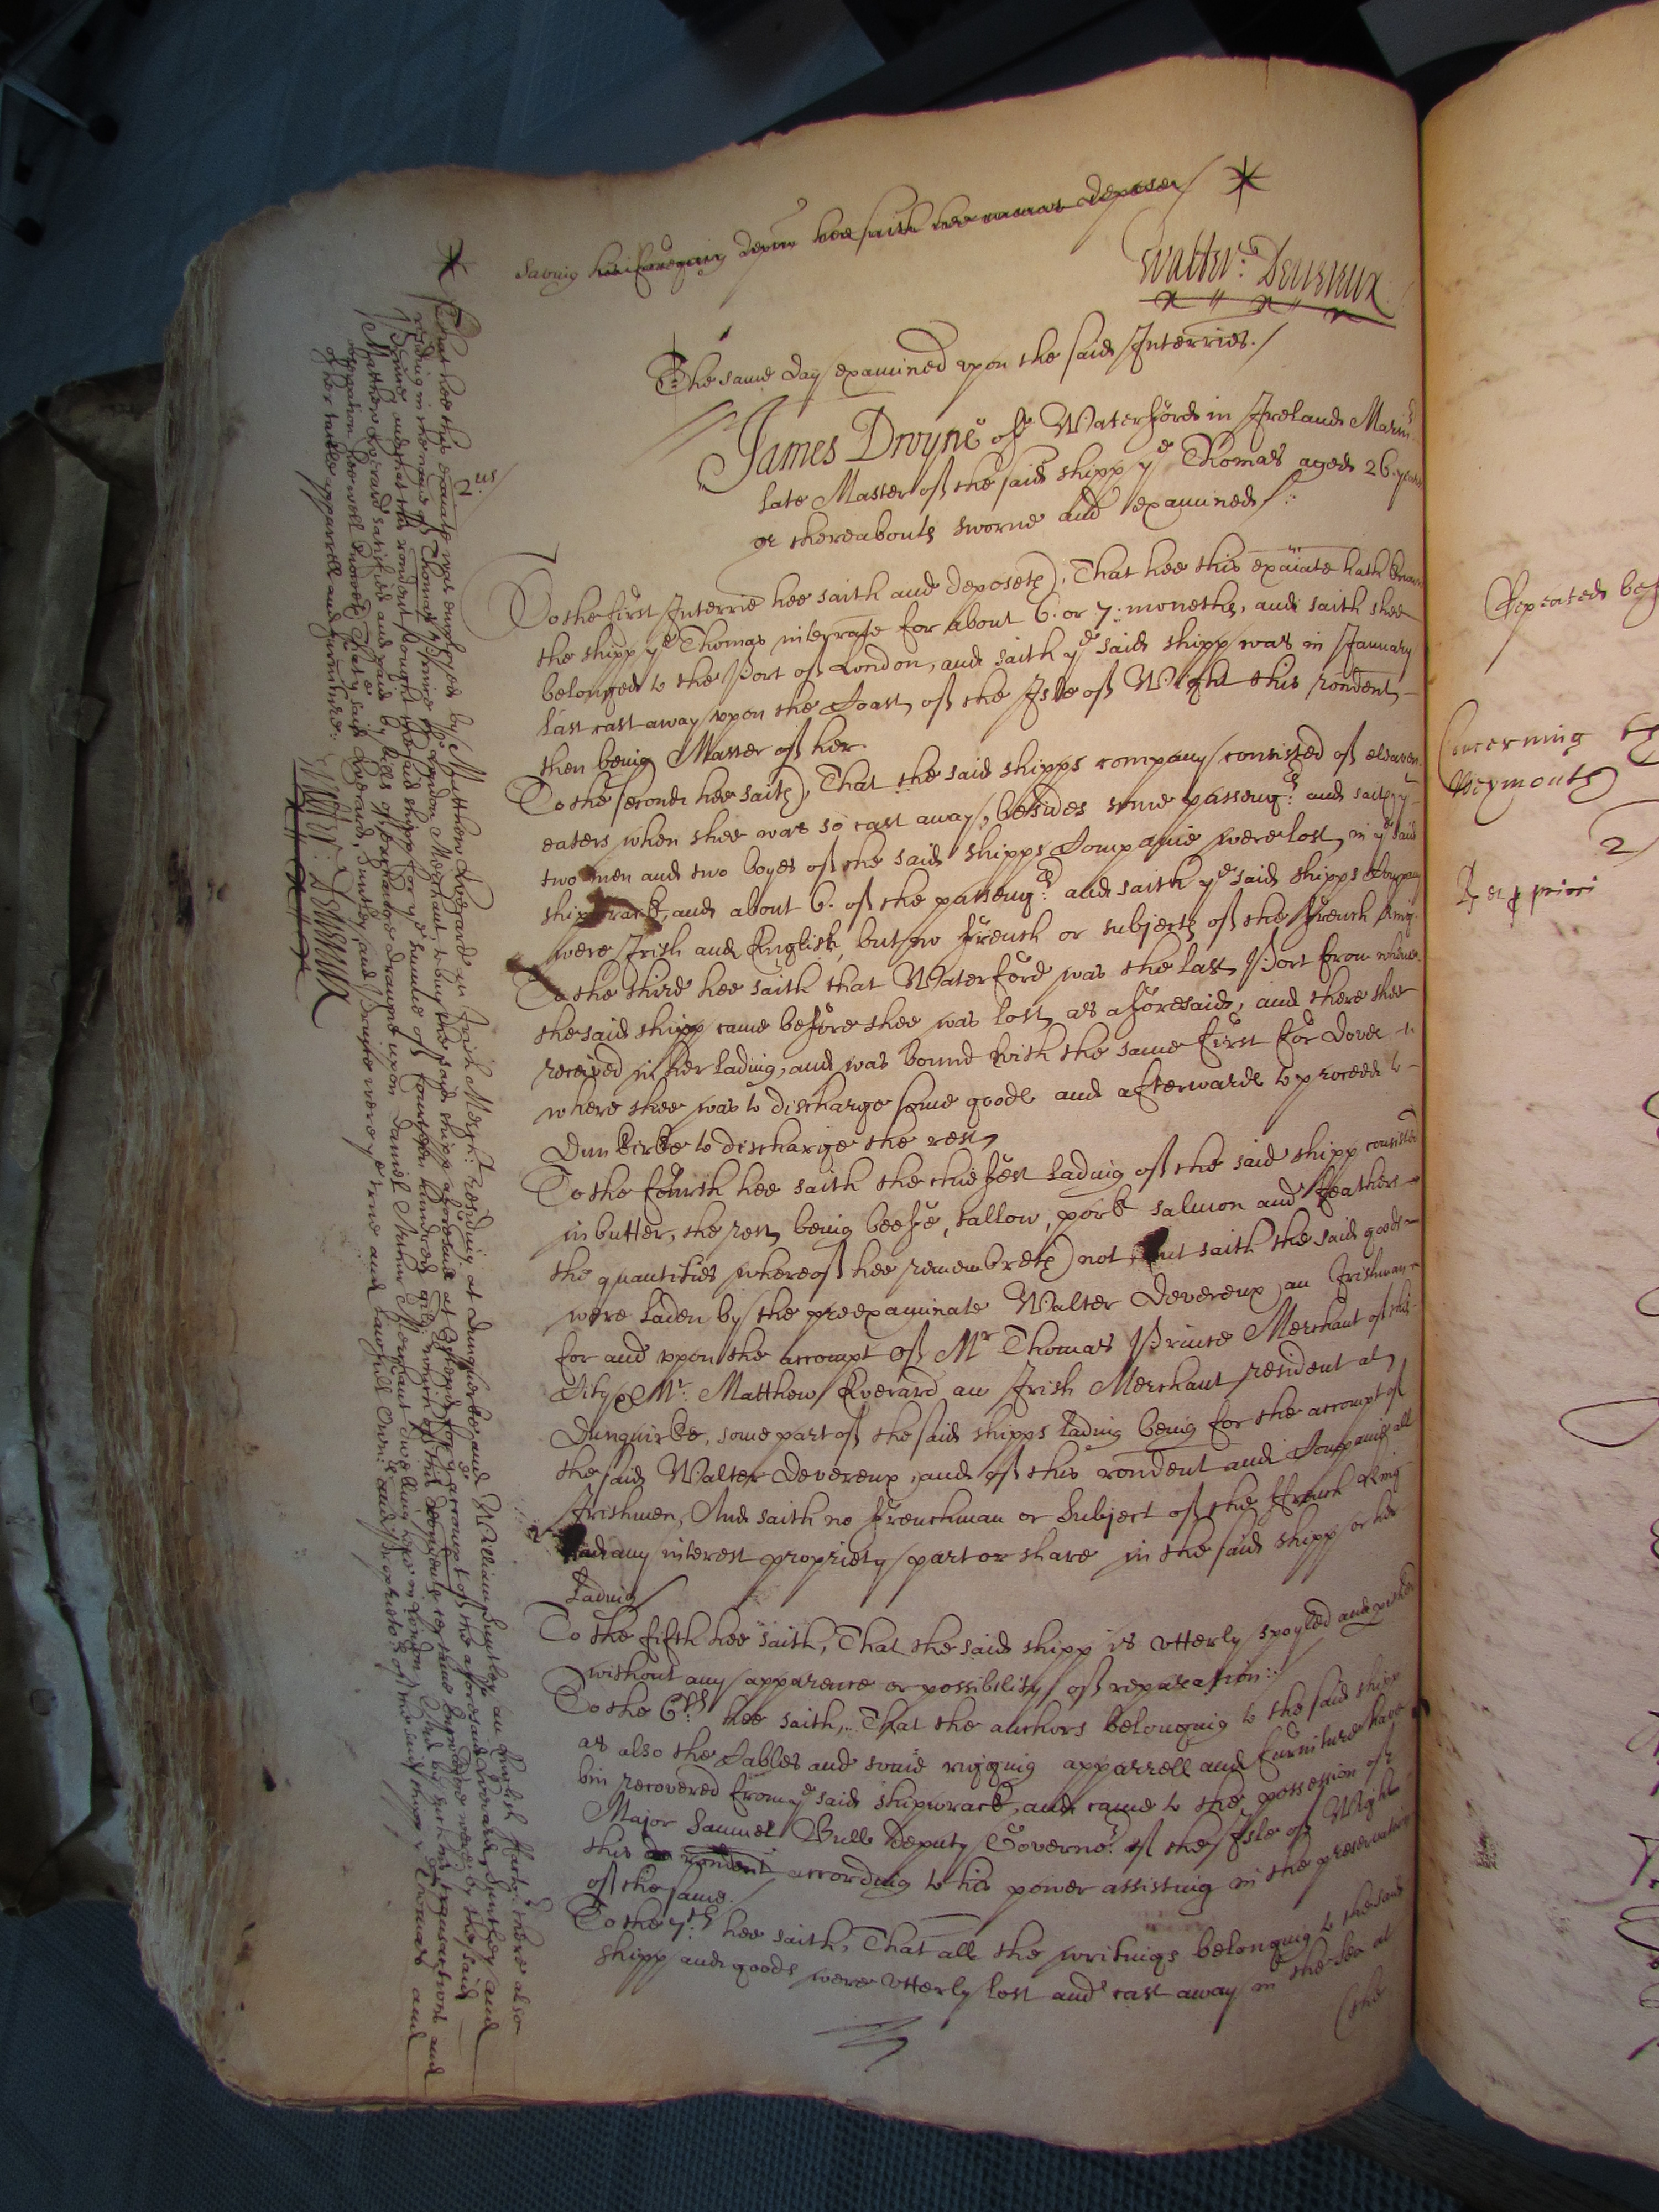 saving his foregoing depon hee saith hee cannot depose/
Walter: Devereux
The same day examined upon the said Interries./
2.us
James Droyne of Waterford in Ireland Marin.r
late Master of the said shipp ye Thomas aged 26. yeares
or thereabouts sworne and examined/:
To the first Interrie hee saith and deposeth, That hee this exáiate hath knowne
the shipp ye Thomas interrate for about 6. or 7: moneths, and saith shee
belonged to the Port of London, and saith ye said shipp was in January
last cast away upon the Coast of the Isle of Wight this rondent
then being Master of her.
To the second hee saith, That the said shipps company consisted of eleaven
eaters when shee was so cast away, besides some passeng.rs and saith
two men and two boyes of the said shipps Companie were lost in ye said
shipwrack, and about 6. of the passeng.rs and saith ye said shipps Company
were Irish and English, but no French or subjects of the French King.
To the third hee saith that Waterford was the last Port from whence
the said shipp came before shee was lost as aforesaid, and there shee
received in her lading, and was bound with the same first for Dover
where shee was to discharge some goods and afterwards to proceede to
Dunkirke to discharge the rest,
To the fourth hee saith the chiefest lading of the said shipp consisted
in butter, the rest being beefe, tallow, pork salmon and feathers
the quantities whereof hee remembreth not, but saith the said goods
were laden by the preexaminate Walter Devereux an Irishman
for and upon the accompt of Mr Thomas Prince Merchant of this
City Mr. Matthew Everard an Irish Merchant resident at
Dunquirke, some part of the said shipps lading being for the accompt of
the said Walter Devereux, and of this rondent and Companie all
Irishmen, And saith no Frenchman or Subject of the French King
had any interest propriety part or share in the said shipp or her
Lading/
To the fifth hee saith, That the said shipp is utterly spoyled and
without any apparence or possibility of reparation:/
To the 6th: hee saith, That the anchors belonging to the said shipp
as also the Cables and some rigging apparrell and furniture have
bin recovered from ye said shipwrack, and came to the possession of
Major Samuel Bull Deputy Governo.r of the Isle of Wight
this rondent according to his power assisting in the preservation
of the same./
To the 7th hee saith, That all the writings belonging to the said
shipp and goods were utterly lost and cast away in the sea at
(the
That hee this exáiate was employed by Matthew Everard an Irish Mercht: residing at Dunquirke and William Huntley an English there also
residing in the name of Thomas Prince of London Merchant to buy the said shipp aforesaid at for ye accompt of the aforesaid Everard, Huntley and
Prince and that this rondent bought the said shipp for ye summe of hundred
Matthew Everard satisfied and paid by bills of exchange drawne upon Daniel Arthur Merchant dwelling here in London, And by such
well knoweth That ye said Everard, Huntley, and Prince were ye true and lawfull Own.rs and Propriet.rs of the said shipp ye Thomas and
of her tackle apparrell and furniture:
Walter: Devereux
Repeated bef
Concerning
Weymouth
2/